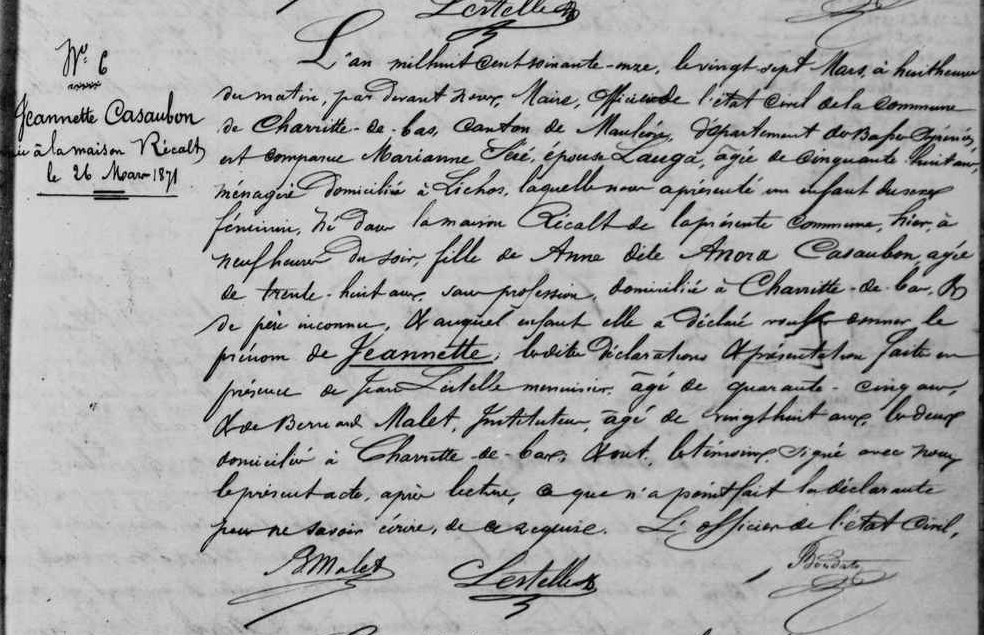 Lestelle
N° 6
Jeannette Casaubon
née à la maison Récalt
le 26 Mars 1871
L'an mil huit cent soixante-onze, le vingt-sept Mars, à huit heures
du matin, par devant nous, Maire, Officier de l'état civil de la commune
de Charritte-de-bas, Canton de Mauléon, département des Basses Pyrénées,
est comparue Marianne épouse Lauga, agée de cinquante huit ans,
ménagère domiciliée à Lichos, laquelle nous a présenté un enfant du sexe
féminin, né dans la maison Récalt de la présente commune, hier, à
neuf heures du soir, fille de Anne dite Anora Casaubon, agée
de trente-huit ans, sans profession, domiciliée à Charritte-de-bas, &
de père inconnu, & auquel enfant elle a déclaré vouloir donner le
prénom de Jeannette; lesdites déclarations & présentation faites en
présence de Jean Lestelle menuisier, âgé de quarante-cinq ans,
& de Bernard Malet, Instituteur, âgé de vingt huit ans, les deux
domiciliés à Charritte-de-bas; & ont, les témoins, signé avec nous
le présent acte, après lecture, ce que n'a point fait la déclarante
pour ne savoir écrire, de ce requise. L'officier de l'état Civil,
BMalet Lestelle